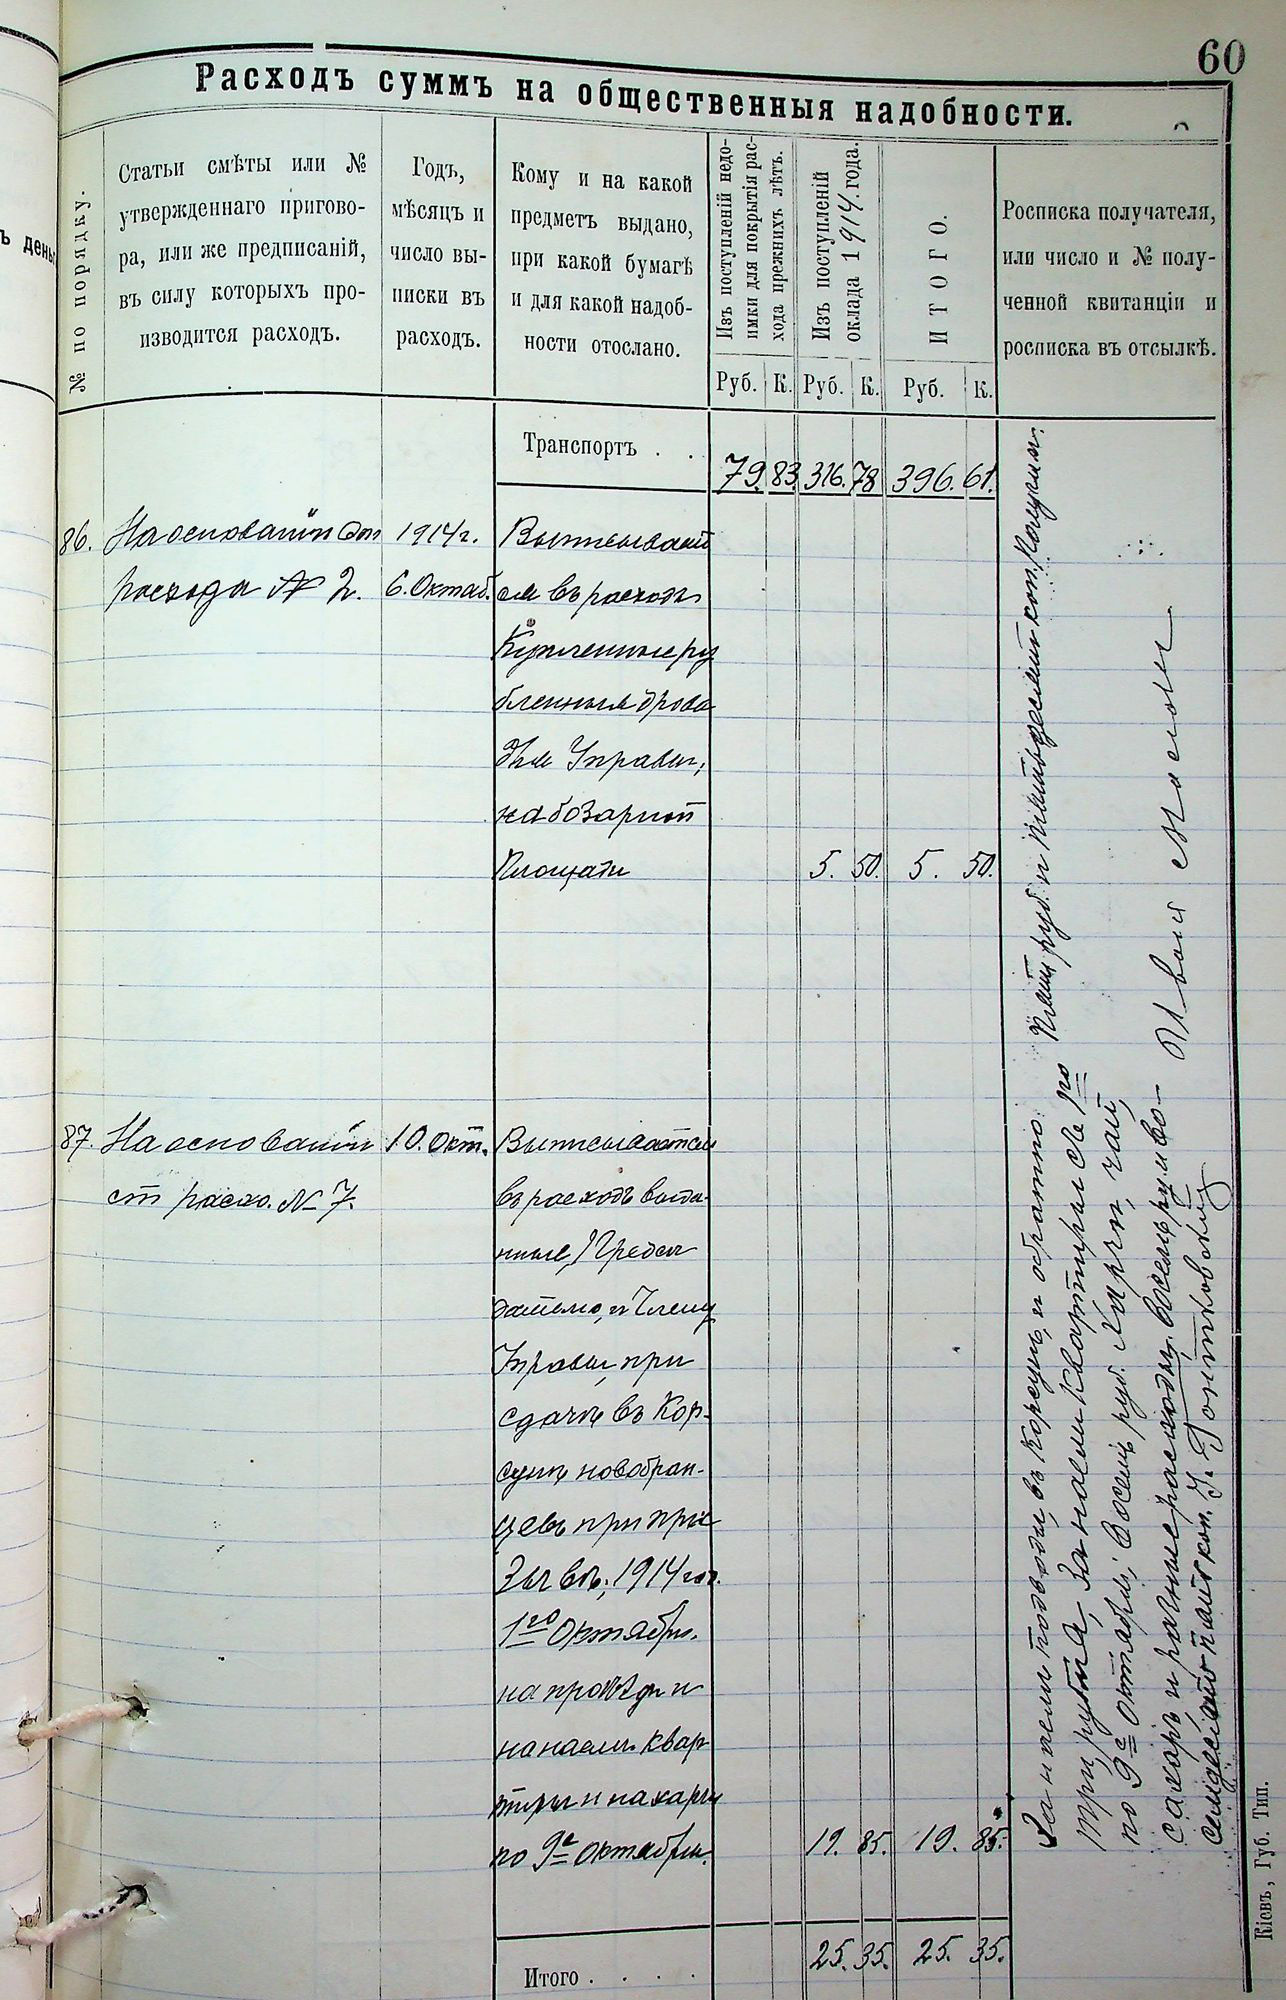 60
Расходъ суммъ на общественныя надобности.
№ по порядку.
Статьи смѣты или №
утвержденнаго пригово-
ра, или же предписаній,
въ силу которыхъ про-
изводится расходъ.
Годъ,
мѣсяцъ и
число вы-
писки въ
расходъ.
Кому и на какой
предметъ выдано,
при какой бумагѣ
и для какой надоб-
ности отослано.
Изъ поступленій недо-
имки для покрытія рас-
хода прежнихъ лѣтъ.
Изъ поступленій
оклада 1914 года.
ИТОГО.
Росписка получателя,
или число и № полу-
ченной квитанціи и
росписка въ отсылкѣ.
Руб. К. Руб. К. Руб. К.
Транспортъ . . 79. 83. 316. 78 396. 61.
86. На основаніи 1914 г.
расхода № 2. 6. Октяб.
Выписывает
ся въ расходъ
Купленные ру
бленныя дрова
для Управы,
на базарной
Площади 5. 50. 5. 50.
Пять руб. и пятьдесят коп. Получил.
87. На основаніи 10. Окт.
ст расхо. № 7.
Выписывается
въ расходъ выда-
нные Предсѣ
дателю, и Члену
Управы, при
сдачѣ въ Кор-
сунѣ новобран-
цевъ при при
зывѣ, 1914 год.
1го Октября.
на проѣзди и
на наемъ квар
тиры и на харчи
по 9е Октября. 19. 85. 19. 85.
За наем подводы, въ Корсунь и обратно
три рубля, За наем Квартиры съ 1го
по 9е Октября, Восемь руб. Харчи, чай,
сахаръ и разные расходы, Восемь руб во-
семдесят пять коп.
Итого . . . . 25. 35. 25. 35.
Кіевъ, Губ. Тип.
ъ день